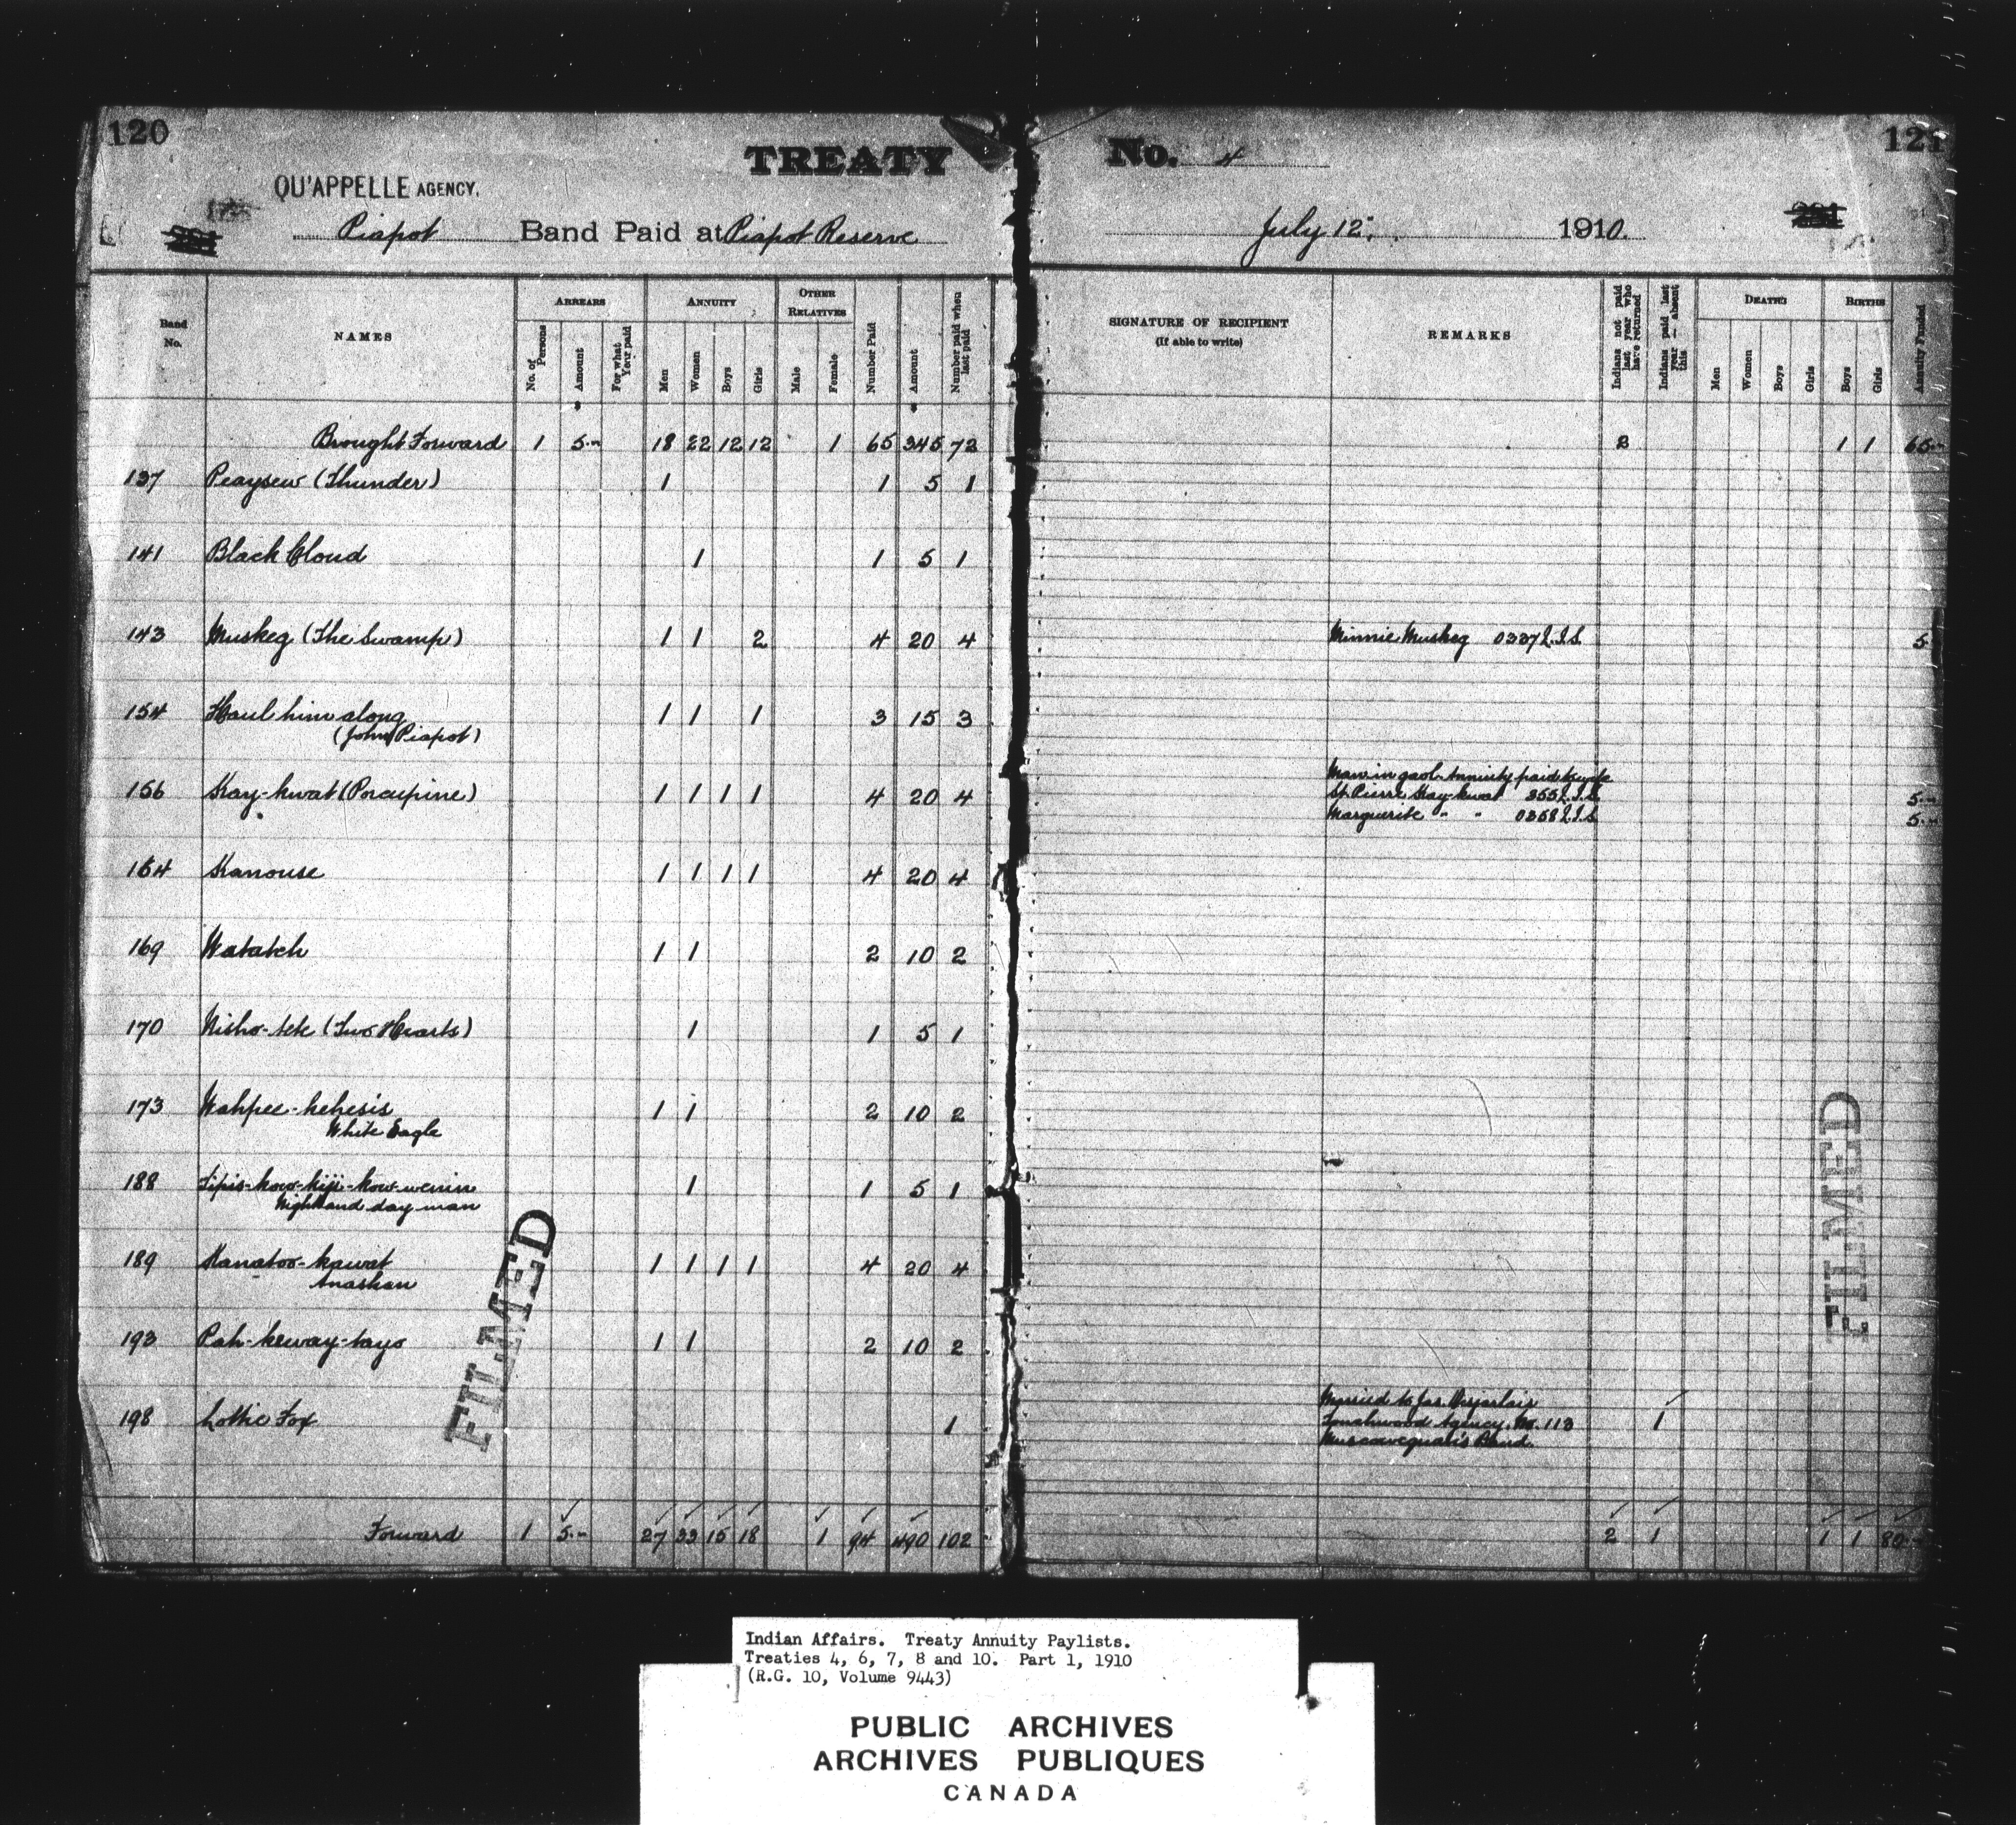 120
TREATY No. 4
121
QU'APPELLE AGENCY.
Piapot Band Paid at Piapot Reserve July 12, 1910.
Band No.
NAMES
ARREARS
No. of Persons
Amount
For what Year paid
ANNUITY
Men
Women
Boys
Girls
OTHER RELATIVES
Male
Female
Number Paid
Amount
Number paid when last paid
SIGNATURE OF RECIPIENT
(If able to write)
REMARKS
Indians not paid last year who have returned
Indians paid last year — absent this
DEATHS
Men
Women
Boys
Girls
BIRTHS
Boys
Girls
Annuity Funded
Brought Forward 1 5.- 18 22 12 12 1 65 345 72 2 1 1 65.-
137 Peaysew (Thunder) 1 1 5 1
141 Black Cloud 1 1 5 1
143 Muskeg (The Swamp) 1 1 2 4 20 4 Minnie Muskeg 0337 Q.I.S. 5
154 Haul him along 1 1 1 3 15 3
(John Piapot)
Man in gaol. Annuity paid
156 Kay-kwat (Porcupine) 1 1 1 1 4 20 4 St. Pierre Kay-kwat 355 Q.I.S. 5.-
Marguerite " " 0358 Q.I.S. 5.-
164 Kanouse 1 1 1 1 4 20 4
169 Watatch 1 1 2 10 2
170 Nisho-tek (Two Hearts) 1 1 5 1
173 Wahpee-kehesis 1 1 2 10 2
White Eagle
188 Tipis-kow-kiji-kow-wenin 1 1 5 1
Night and day man
189 Kanatoo-kawat 1 1 1 1 4 20 4
Anaskan
193 Pah-keway-tays 1 1 2 10 2
Married to Jas. Desjarlais
198 Lottie Fox 1 Touchwood Agency. No. 113 1
Muscowequan's Band.
Forward 1 5.- 27 33 15 18 1 94 490 102 2 1 1 1 80.-
FILMED
FILMED
Indian Affairs. Treaty Annuity Paylists.
Treaties 4, 6, 7, 8 and 10. Part 1, 1910
(R.G. 10, Volume 9443)
PUBLIC ARCHIVES
ARCHIVES PUBLIQUES
CANADA